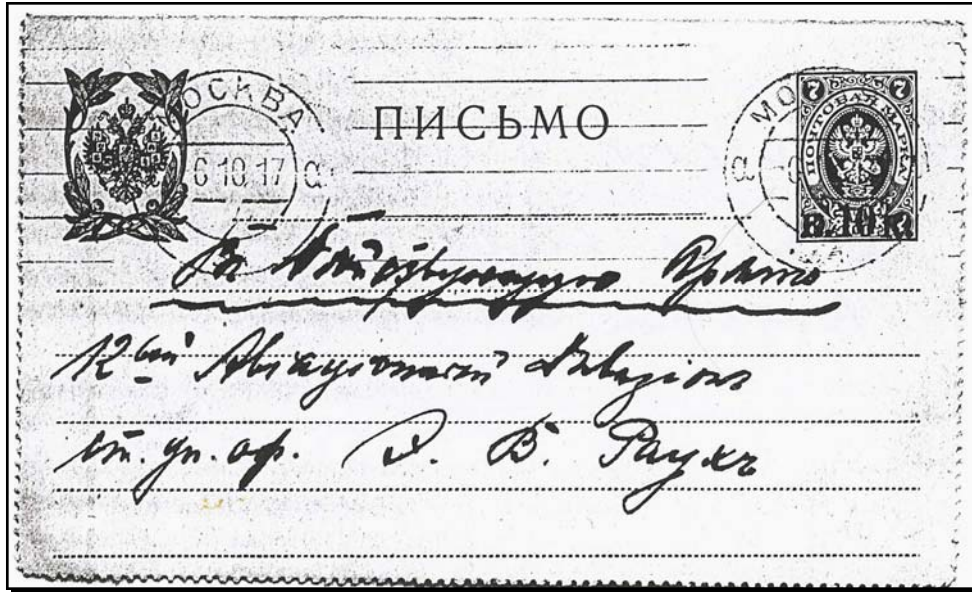 ПИСЬМО
МОСКВА
6 10 17
а
МО
а
7 7
ПОЧТОВАЯ МАРКА
К. 10 К.
Въ Дѣйствующую Армію
12ый Авіаціонный Дивизіонъ
ст. ун. оф. В. Раухъ